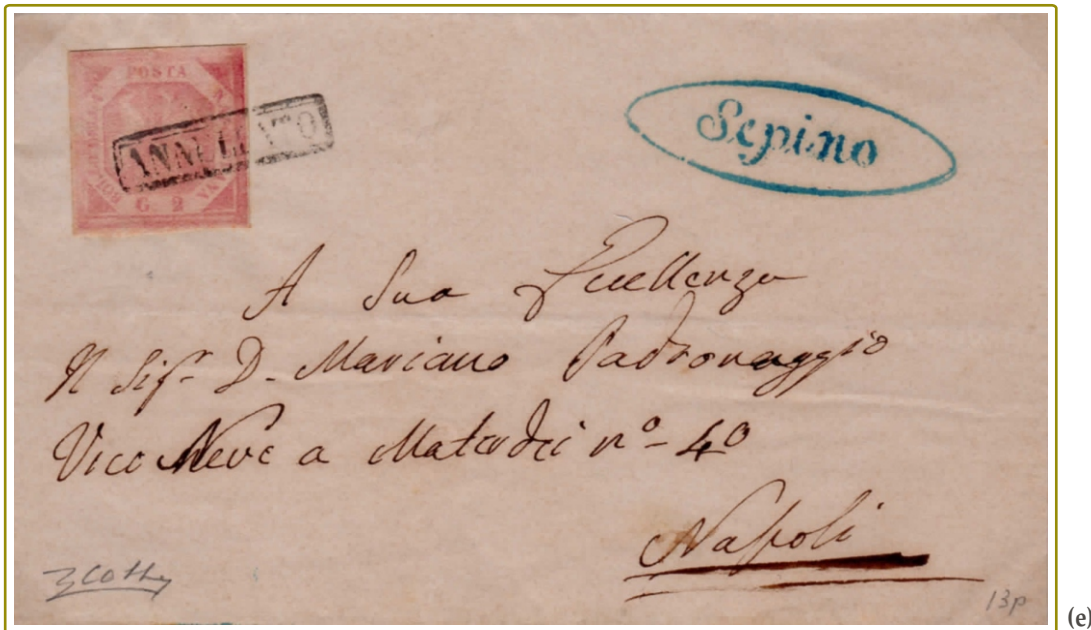 POSTA
NAPOLETANA
G. 2
ANNULLATO
Sepino
A Sua Eccellenza
Il Sig.r D. Mariano Padronaggio
Vico Neve a Materdei nº 40
Napoli
13p
(e)